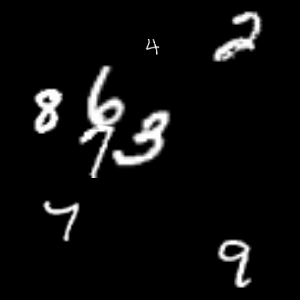 4 2
8 6
7 3
7
9